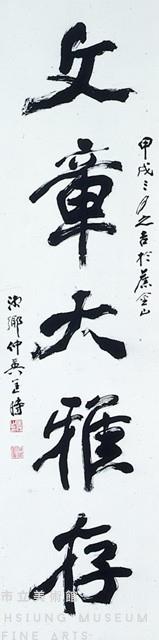 文章大雅存
甲戌三月之吉於蔗金山
市立美術館
HSIUNG MUSEUM
FINE ARTS